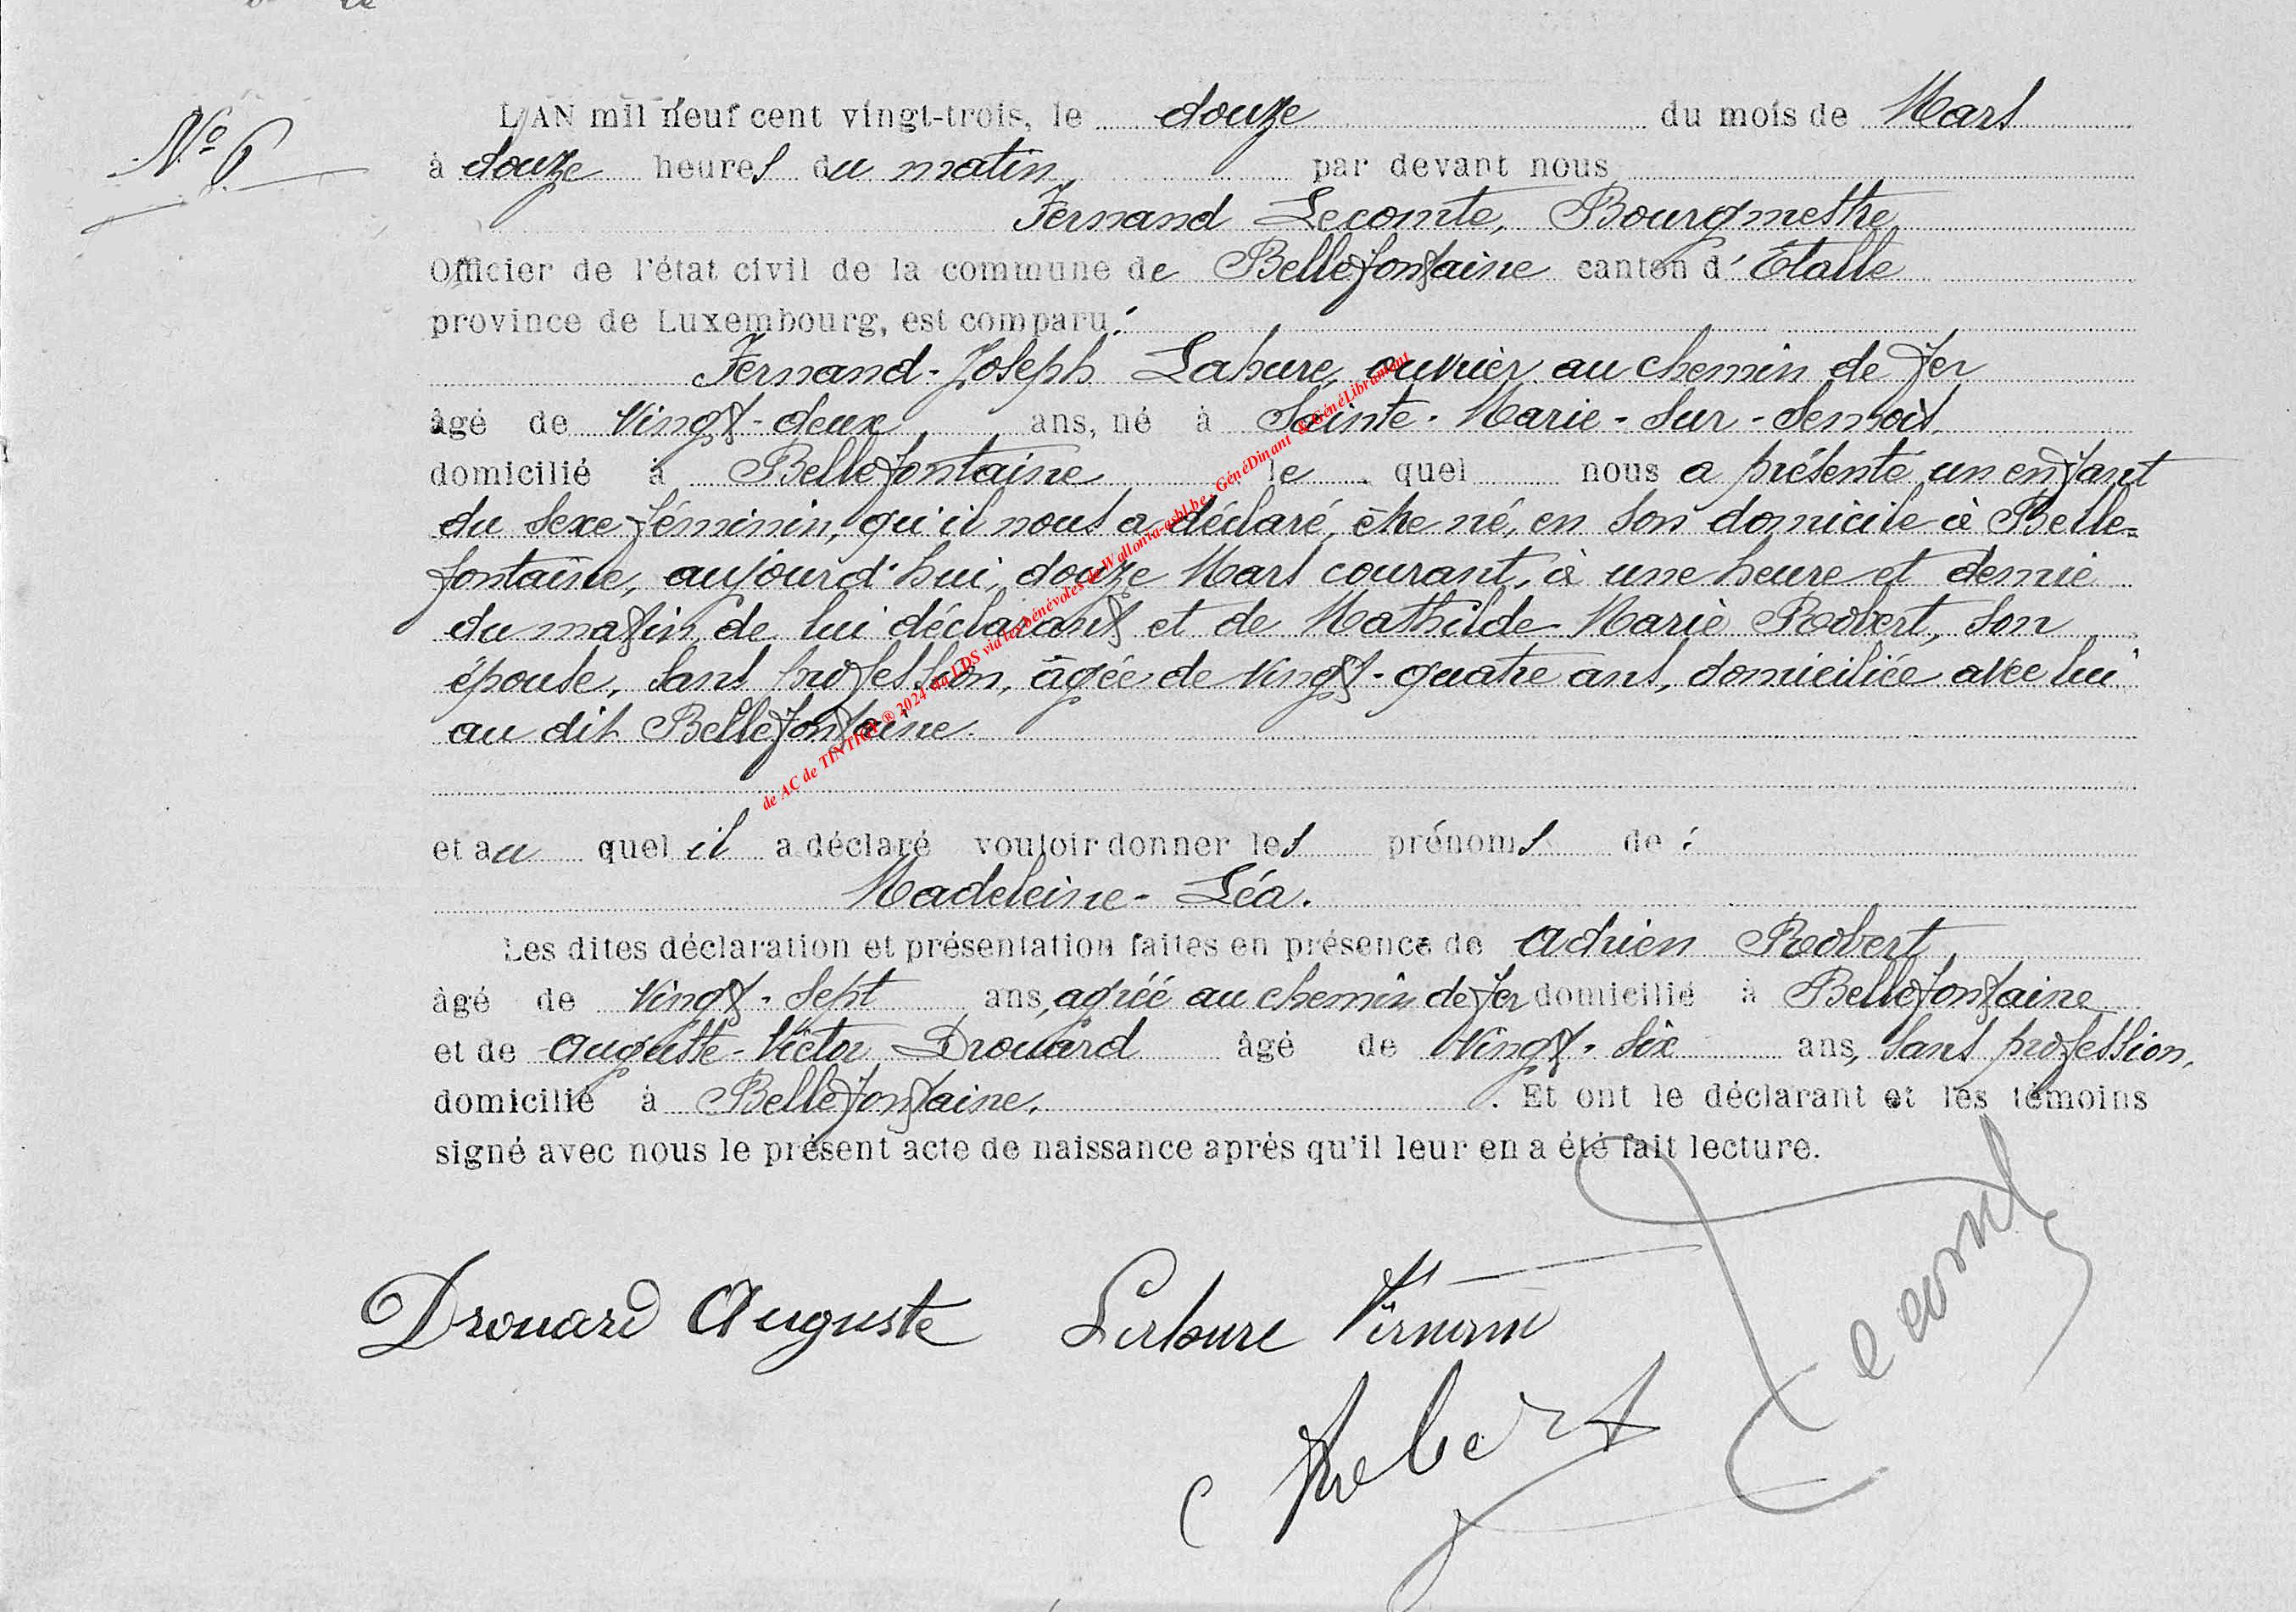 N° 6
L'AN mil neuf cent vingt-trois, le douze du mois de Mars
à douze heures du matin par devant nous
Fernand Lecomte, Bourgmestre
Officier de l'état civil de la commune de Bellefontaine canton d'Etalle
province de Luxembourg, est comparu:
Fernand-Joseph Lahure, ouvrier au chemin de fer
âgé de vingt-deux ans, né à Sainte-Marie-sur-Semois,
domicilié à Bellefontaine le quel nous a présenté un enfant
du sexe féminin, qu'il nous a déclaré, être né, en son domicile à Belle-
fontaine, aujourd'hui, douze Mars courant, à une heure et demie
du matin, de lui déclarant et de Mathilde-Marie Robert, son
épouse, sans profession, âgée de vingt-quatre ans, domiciliée avec lui
au dit Bellefontaine.
et au quel il a déclaré vouloir donner les prénoms de:
Madeleine-Léa.
Les dites déclaration et présentation faites en présence de Adrien Robert,
âgé de vingt-sept ans, agréé au chemin de fer domicilié à Bellefontaine
et de Auguste-Victor Drouard âgé de vingt-six ans, sans profession,
domicilié à Bellefontaine. Et ont le déclarant et les témoins
signé avec nous le présent acte de naissance après qu'il leur en a été fait lecture.
Drouard Auguste Lahure Fernand
Robert
Lecomte
de AC de TINTIGNY ® 2024 via LDS via les bénévoles de Wallonia-asbl.be, GénéDinant & GénéLibramont